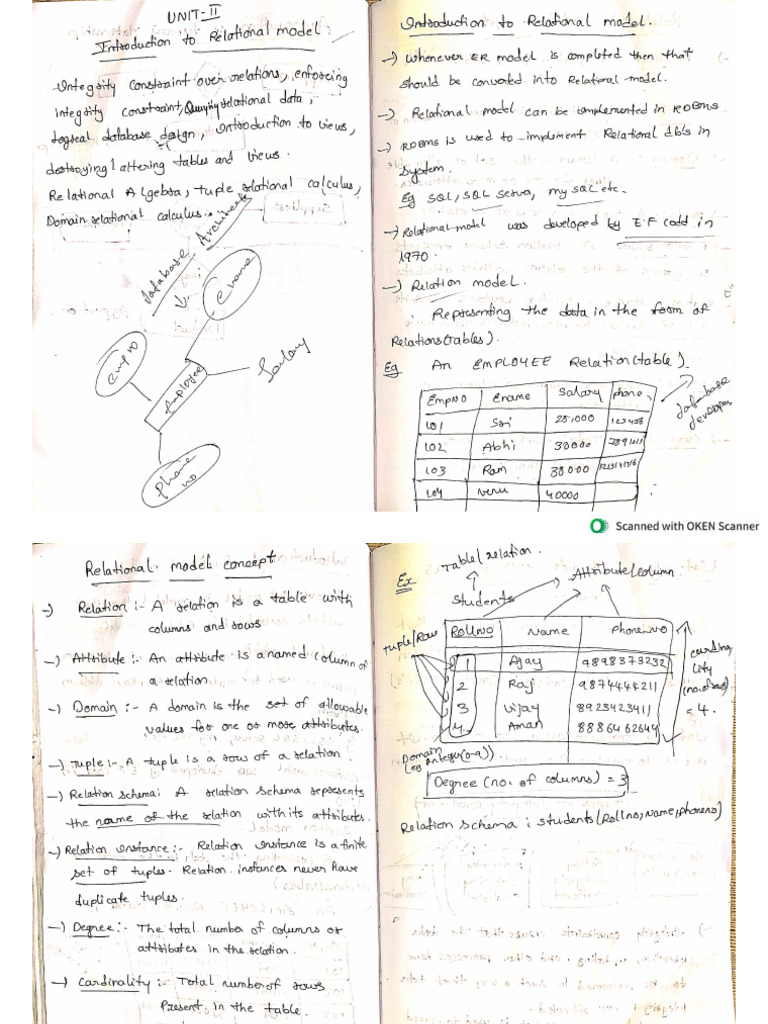 UNIT-II
Introduction to Relational model:
Integrity constraint over relations, enforcing
integrity constraint, Querying relational data,
Logical database design, introduction to views,
destroying / altering tables and views.
Relational Algebra, tuple relational calculus,
Domain relational calculus.
Database Architect
Ename
Emp no
Employee
Salary
Phone no
Introduction to Relational model.
-) Whenever ER model is completed then that
should be converted into Relational model.
-) Relational model can be implemented in RDBMS
-) RDBMS is used to implement Relational dbs in
System.
Eg SQL, SQL Server, my SQL etc.
-) Relational model was developed by E.F codd in
1970.
-) Relation model.
: Representing the data in the form of
Relations(tables).
Eg An EMPLOYEE Relation(table)
EmpNO Ename Salary phone
101 Sri
102 Abhi 30000
103 Ram 38000
104 venu 40000
database developer
Scanned with OKEN Scanner
Relational model concept
-) Relation :- A relation is a table with
columns and rows
-) Attribute :- An attribute is a named column of
a relation
-) Domain :- A domain is the set of allowable
values for one or more attributes.
-) Tuple :- A tuple is a row of a relation
-) Relation schema: A relation schema represents
the name of the relation with its attributes.
-) Relation instance :- Relation instance is a finite
set of tuples. Relation instances never have
duplicate tuples.
-) Degree :- The total number of columns or
attributes in the relation.
-) Cardinality :- Total number of rows
Present in the table.
Ex Table/relation.
Attribute/column
Students
Tuple/Row
Rollno Name Phone.no
1 Ajay 9898373232
2 Raj 9874444211
3 Vijay 8923423411
4 Aman 8886462644
cardinality
(no.of rows)
= 4.
Domain
(eg integer(0-9)).
Degree (no. of columns) = 3
Relation schema : students (Rollno, Name, phoneno)